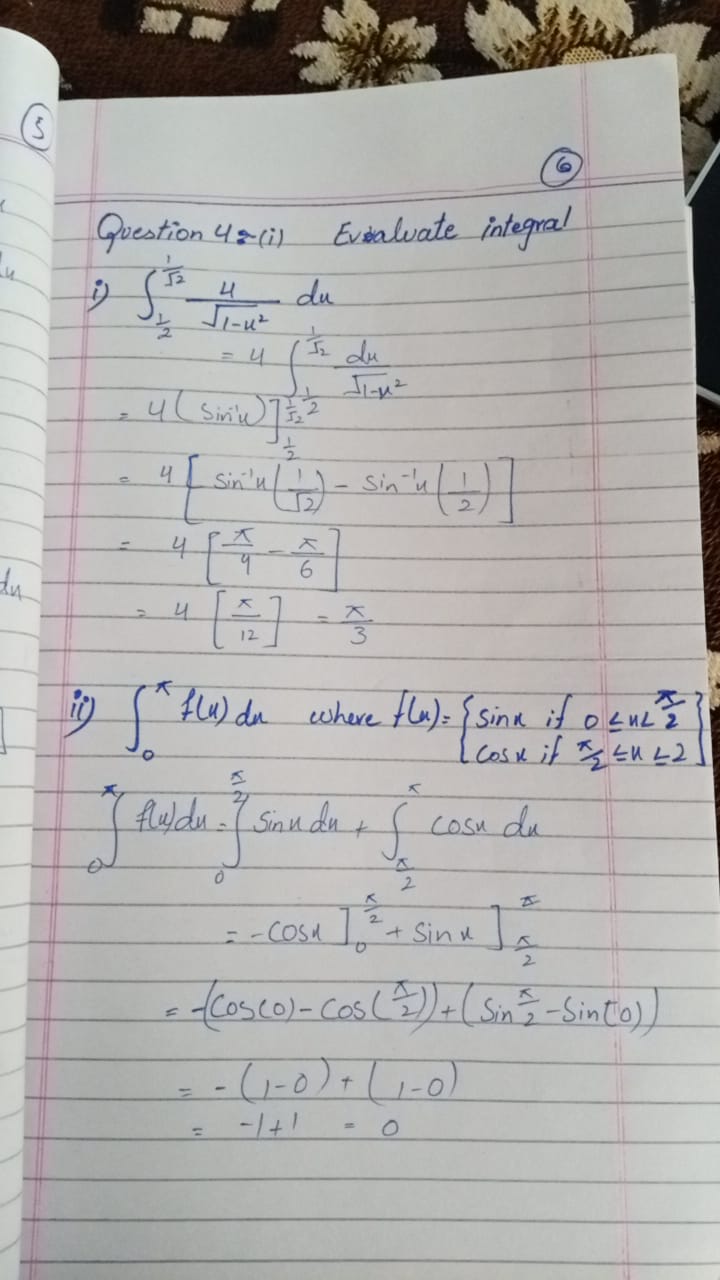 5
6
Question 4:-(i) Evaluate integral
i) ∫_{1/2}^{1/√2} 4/√(1-x²) dx
= 4 ∫_{1/2}^{1/√2} dx/√(1-x²)
= 4(sin⁻¹x)]_{1/2}^{1/√2}
= 4[sin⁻¹x(1/√2) - sin⁻¹x(1/2)]
= 4[π/4 - π/6]
= 4[π/12] = π/3
ii) ∫_0^π f(x) dx where f(x) = {sinx if 0≤x<π/2
cosx if π/2 ≤x≤2}
∫_0^π f(x)dx = ∫_0^{π/2} sinx dx + ∫_{π/2}^π cosx dx
= -cosx]_0^{π/2} + sinx]_{π/2}^π
= -(cos(0) - cos(π/2)) + (sin π/2 - sin(0))
= -(1-0) + (1-0)
= -1+1 = 0